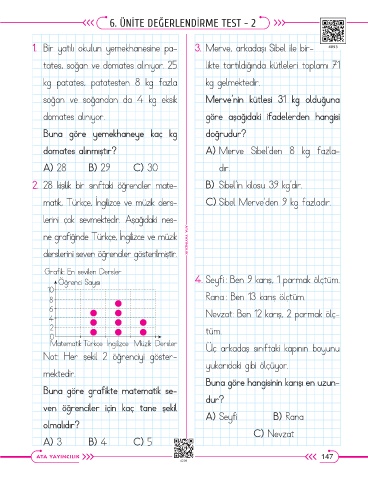 6. ÜNİTE DEĞERLENDİRME TEST - 2
1. Bir yatılı okulun yemekhanesine pa-
tates, soğan ve domates alınıyor. 25
kg patates, patatesten 8 kg fazla
soğan ve soğandan da 4 kg eksik
domates alınıyor.
Buna göre yemekhaneye kaç kg
domates alınmıştır?
A) 28 B) 29 C) 30
2. 28 kişilik bir sınıftaki öğrenciler mate-
matik, Türkçe, İngilizce ve müzik ders-
lerini çok sevmektedir. Aşağıdaki nes-
ne grafiğinde Türkçe, İngilizce ve müzik
derslerini seven öğrenciler gösterilmiştir.
Grafik: En sevilen Dersler
Öğrenci Sayısı
10
8
6
4
2
0
Matematik Türkçe İngilizce Müzik Dersler
Not: Her şekil 2 öğrenciyi göster-
mektedir.
Buna göre grafikte matematik se-
ven öğrenciler için kaç tane şekil
olmalıdır?
A) 3 B) 4 C) 5
3. Merve, arkadaşı Sibel ile bir-
likte tartıldığında kütleleri toplamı 71
kg gelmektedir.
Merve'nin kütlesi 31 kg olduğuna
göre aşağıdaki ifadelerden hangisi
doğrudur?
A) Merve Sibel'den 8 kg fazla-
dır.
B) Sibel'in kilosu 39 kg'dır.
C) Sibel Merve'den 9 kg fazladır.
4. Seyfi: Ben 9 karış, 1 parmak ölçtüm.
Rana: Ben 13 karış ölçtüm.
Nevzat: Ben 12 karış, 2 parmak ölç-
tüm.
Üç arkadaş sınıftaki kapının boyunu
yukarıdaki gibi ölçüyor.
Buna göre hangisinin karışı en uzun-
dur?
A) Seyfi B) Rana
C) Nevzat
ATA YAYINCILIK
147